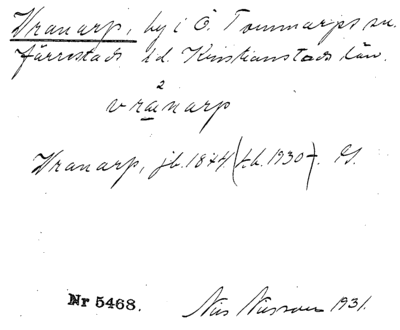 Vranarp, by i Ö. Tommarps sn.
Järrestads hd. Kristianstads län.
2
vranarp
Vranarp, jb. 1874 (tk. 1930-).
Nr 5468. Nils Nilsson 1931.